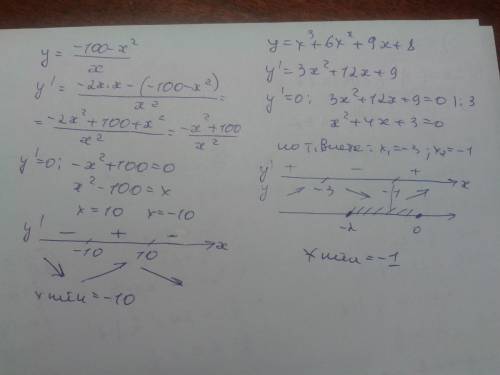 y = (-100-x²)/x
y' = (-2x·x-(-100-x²))/x² =
= (-2x²+100+x²)/x² = (-x²+100)/x²
y'=0; -x²+100=0
x²-100=x
x=10 x=-10
y' - + - x
-10 10
x мин = -10
y=x³+6x²+9x+8
y'=3x²+12x+9
y'=0; 3x²+12x+9=0 |:3
x²+4x+3=0
по т. Виета: x₁=-3; x₂=-1
y' + - +
y -3 -1 x
-2 0
x мин = -1